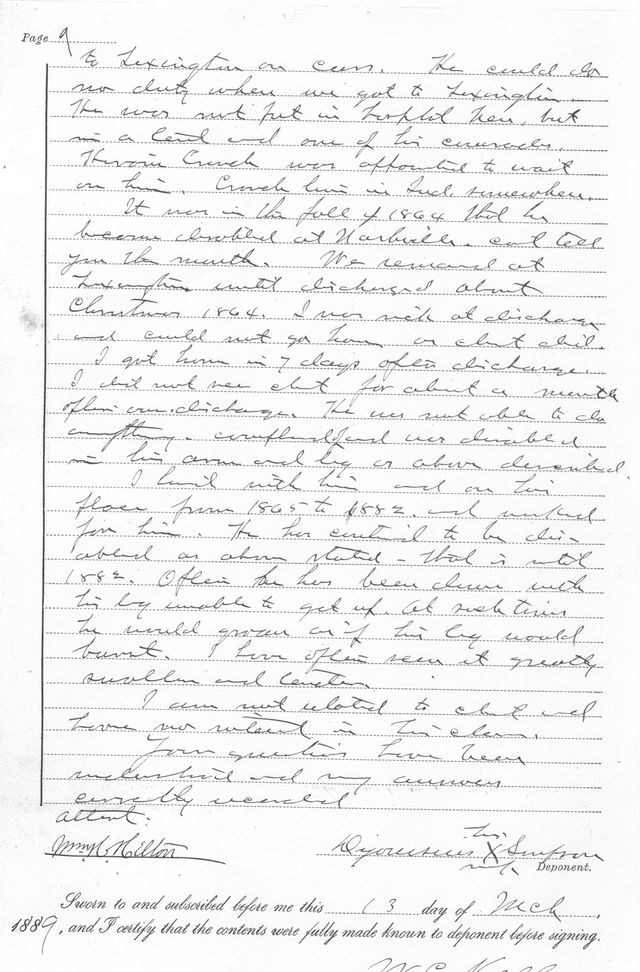 Page 9
to Lexington on cars. He could do
no duty when we got to Lexington.
He was not put in hospital then, but
in a tent and one of his comrades,
Crouch was appointed to wait
on him. Crouch lives in Ind. somewhere.
It was in the fall of 1864 that he
became disabled at Nashville - cant tell
you the month. We remained at
Lexington until discharged about
Christmas 1864. I was with at discharge
and could not go home as clmt did.
I got home in 7 days after discharge.
I did not see clmt for about a month
after our discharge. He was not able to do
anything - complained and was disabled
in his arm and leg as above described.
I lived with him and on his
place from 1865 to 1882 and worked
for him. He has continued to be dis-
abled as above stated - that is until
1882. Often he has been down with
his leg unable to get up. At such times
he would groan as if his leg would
burst. I have often seen it greatly
swollen and tender.
I am not related to clmt and
have no interest in his claim.
Your questions have been
understood and my answers
correctly recorded
attest:
his
Hilton X Simpson
mk Deponent.
Sworn to and subscribed before me this 13 day of Mch,
1889, and I certify that the contents were fully made known to deponent before signing.